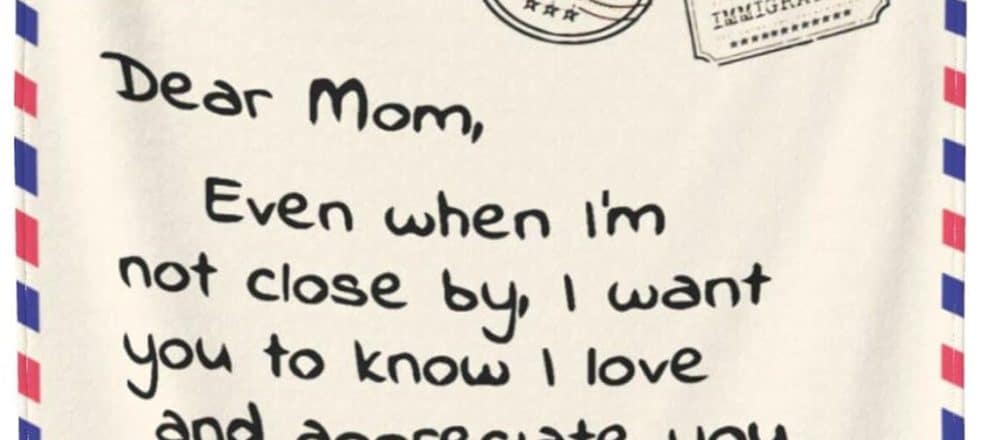 Dear Mom,
Even when I'm
not close by, I want
you to know I love
and appreciate you